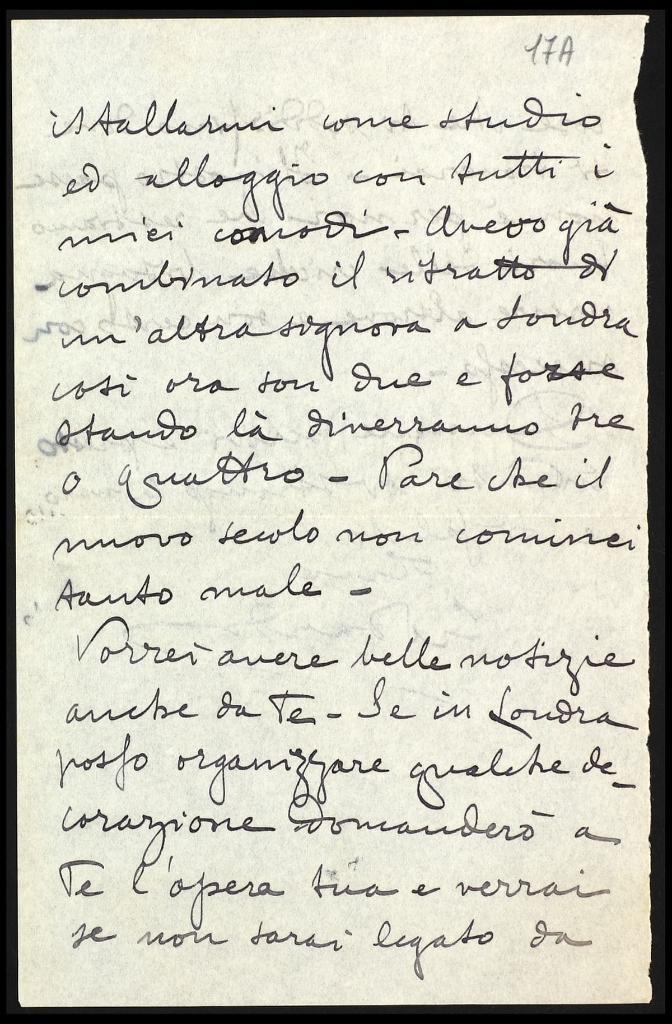 17A
istallarmi come studio
ed alloggio con tutti i
miei comodi - Avevo già
combinato il ritratto di
un'altra signora a Londra
così ora son due e forse
stando là diverranno tre
o quattro - Pare che il
nuovo secolo non cominci
tanto male -
Vorrei avere belle notizie
anche da Te - Se in Londra
posso organizzare qualche de-
corazione domanderò a
Te l'opera tua e verrai
se non sarai legato da